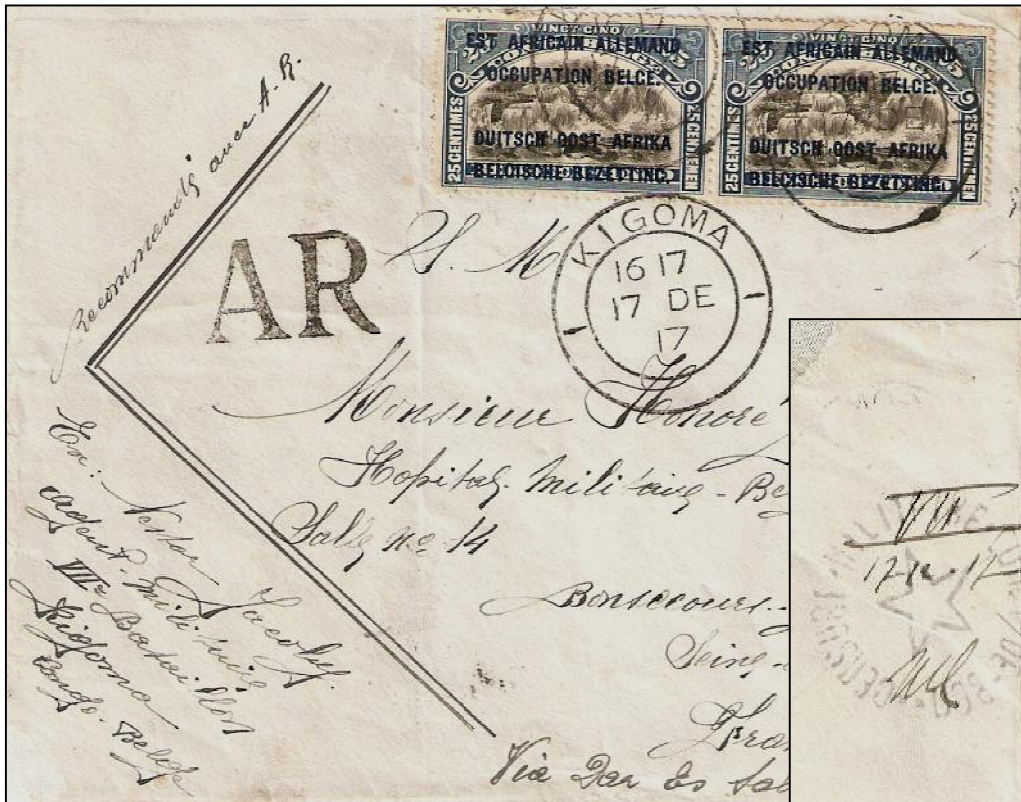 VINGT CINQ
EST AFRICAIN ALLEMAND
OCCUPATION BELGE.
DUITSCH OOST AFRIKA
BELGISCHE BEZETTING.
25 CENTIMES
25 CENTIEMEN
VINGT CINQ
EST AFRICAIN ALLEMAND
OCCUPATION BELGE.
DUITSCH OOST AFRIKA
BELGISCHE BEZETTING.
25 CENTIMES
25 CENTIEMEN
Recommandé avec A.R.
AR
S. M
KIGOMA
16 17
17 DE
17
Monsieur Honoré
Hopital. Militaire - Be
Salle No 14
Bonsecours-
Seine-
Fran
Via Dar Es Sal
Ex: Nestor Jacobs.
agent. militaire
VIIe Bataillon
Kigoma
Congo. Belge
VII
17-12-17